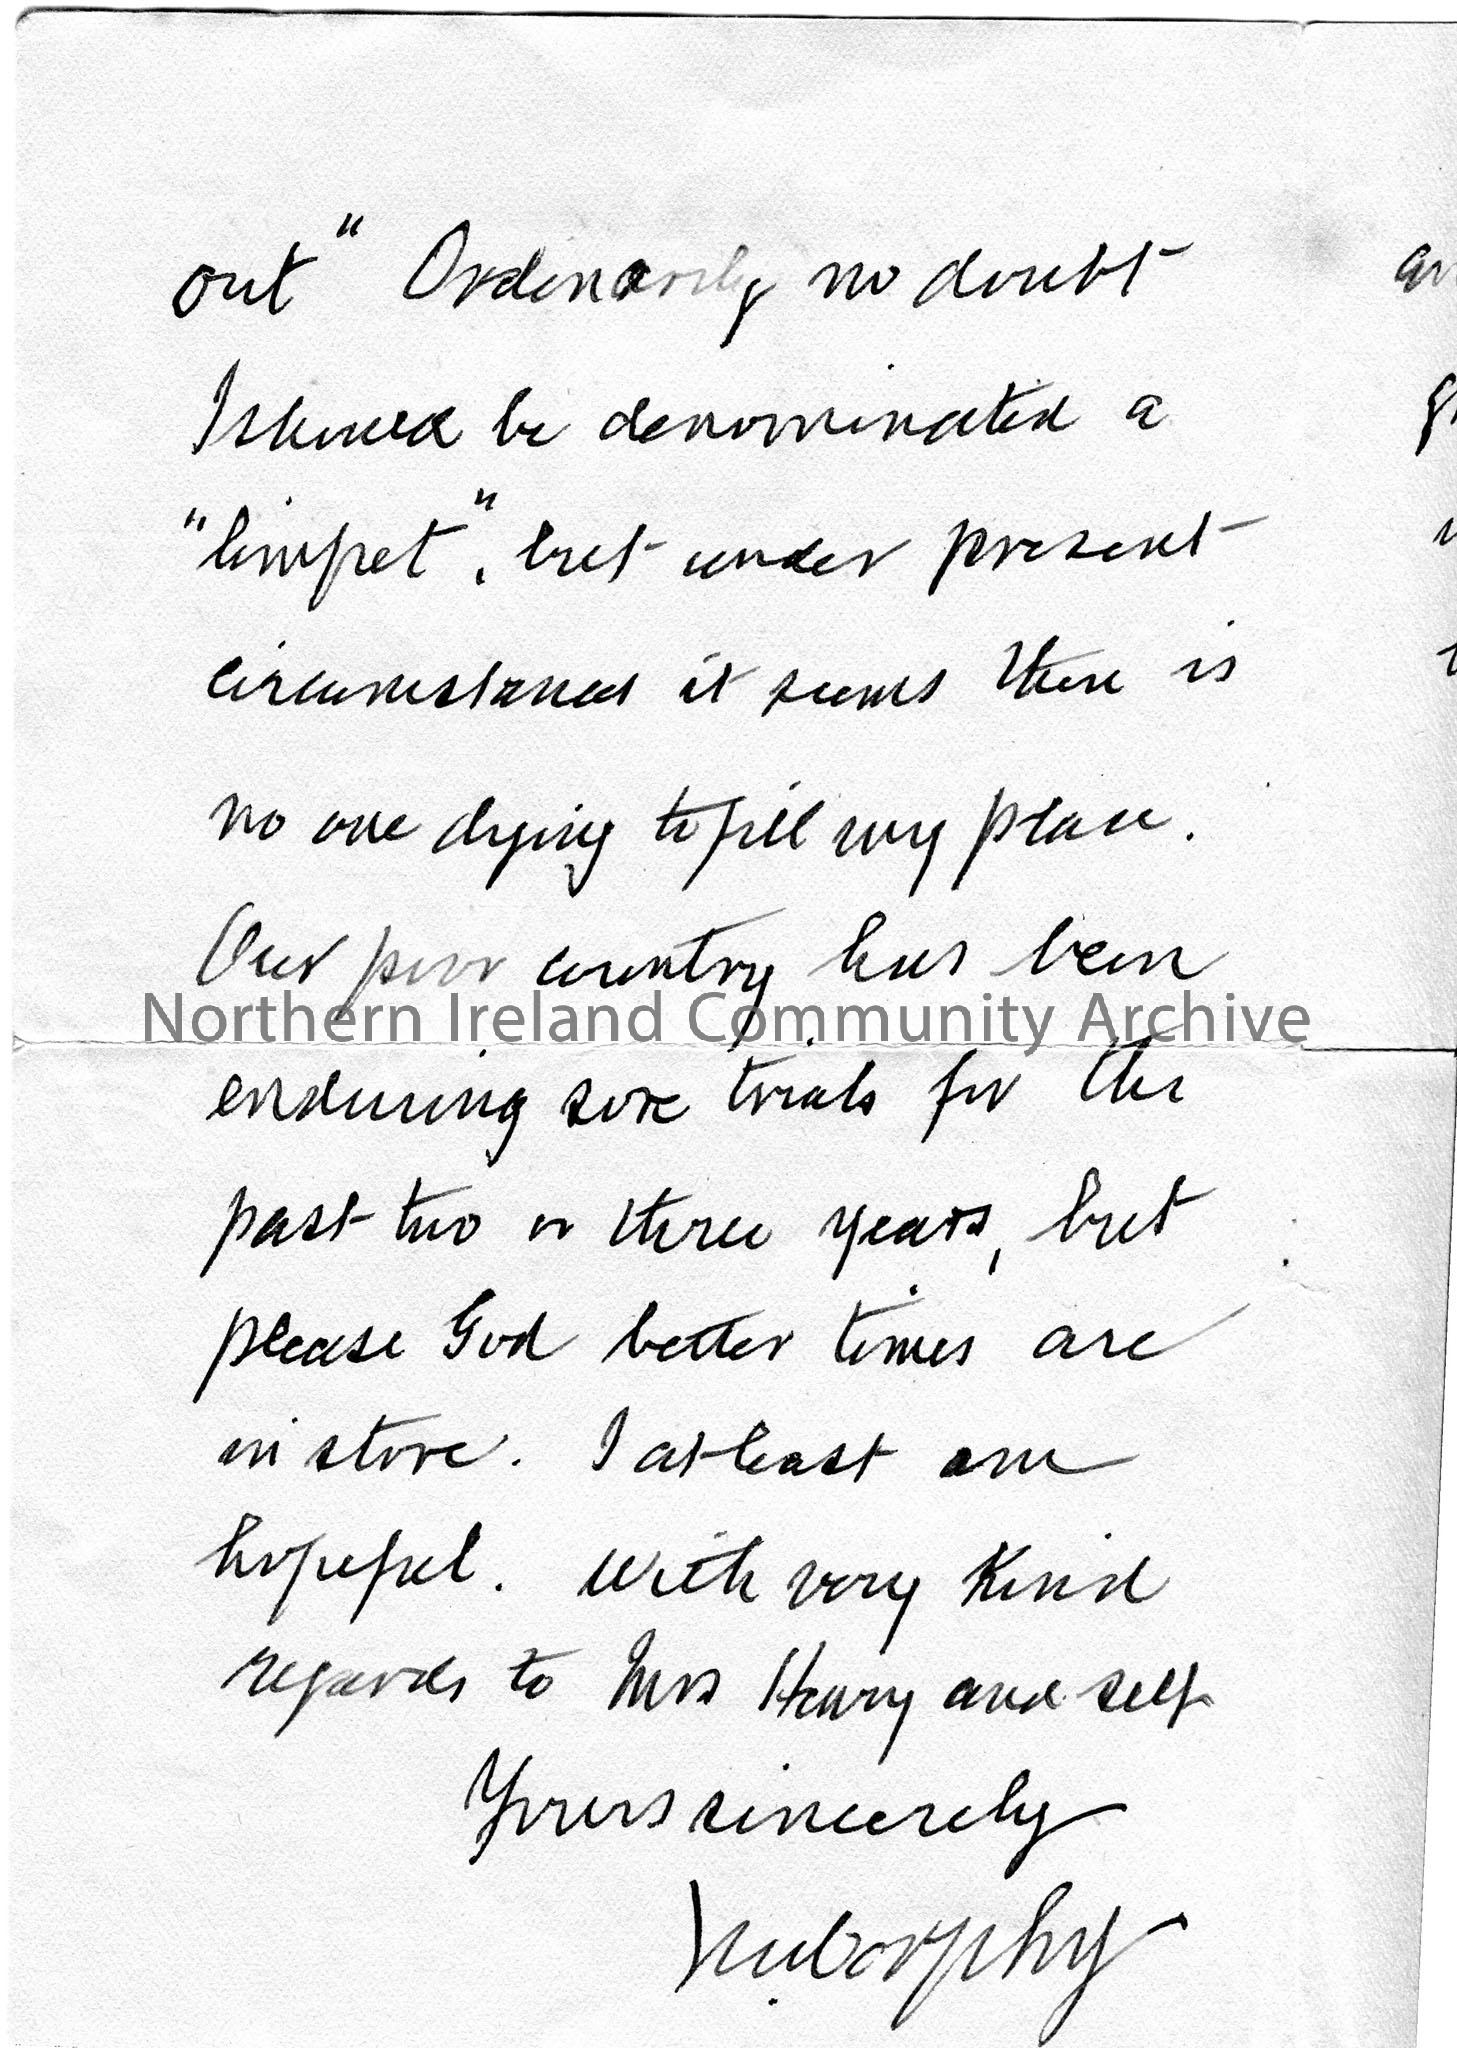 out" Ordinarily no doubt
I should be denominated a
"limpet", but under present
circumstances it seems there is
no one dying to fill my place.
Our poor country has been
Northern Ireland Community Archive
enduring sore trials for the
past two or three years, but
please God better times are
in store. I at least am
hopeful. With very kind
regards to Mrs Henry and self
Yours sincerely